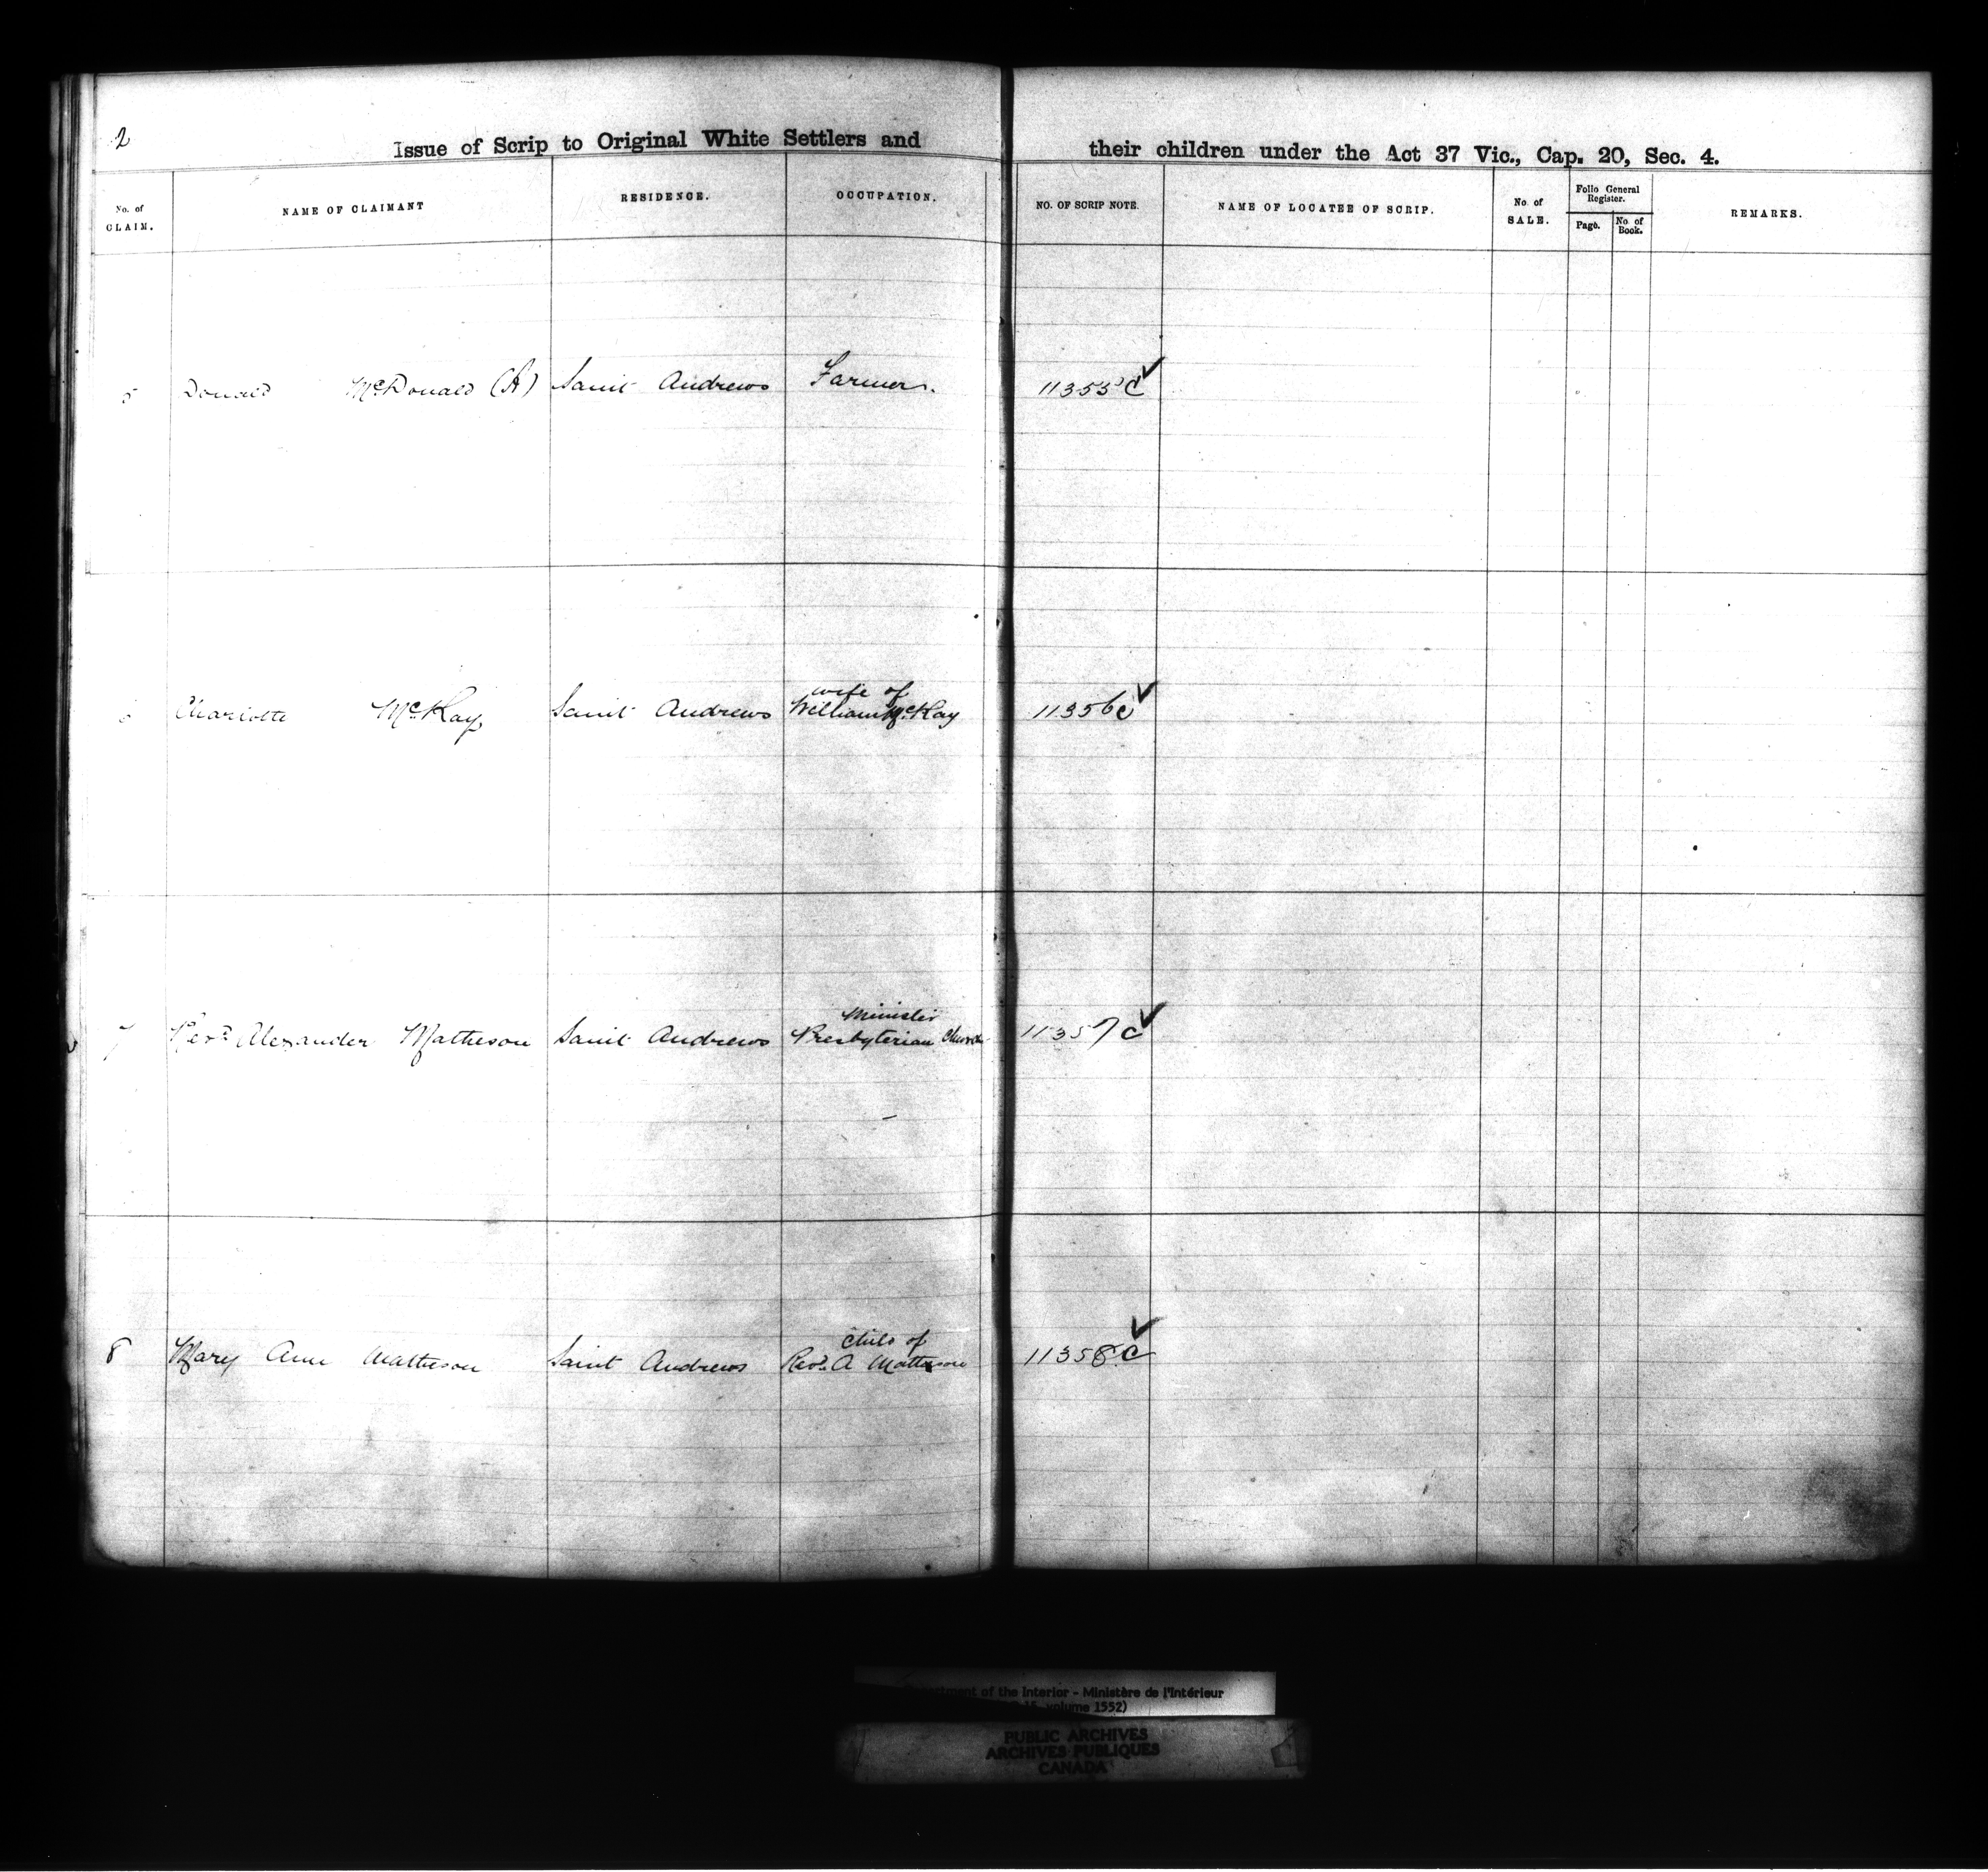 2
Issue of Scrip to Original White Settlers and their children under the Act 37 Vic., Cap. 20, Sec. 4.
No. of CLAIM. NAME OF CLAIMANT RESIDENCE. OCCUPATION. NO. OF SCRIP NOTE. NAME OF LOCATEE OF SCRIP. No. of SALE. Folio General Register. Page. No. of Book. REMARKS.
5 Donald McDonald (A) Saint Andrews Farmer. 11355 C
wife of
6 Charlotte McKay Saint Andrews William McKay 11356 C
Minister
7 Revd. Alexander Matheson Saint Andrews Presbyterian Church 11357 C
Child of
8 Mary Ann Matheson Saint Andrews Revd. A Matheson 11358 C
of the Interior - Ministère de l'Intérieur
volume 1552)
PUBLIC ARCHIVES
ARCHIVES PUBLIQUES
CANADA